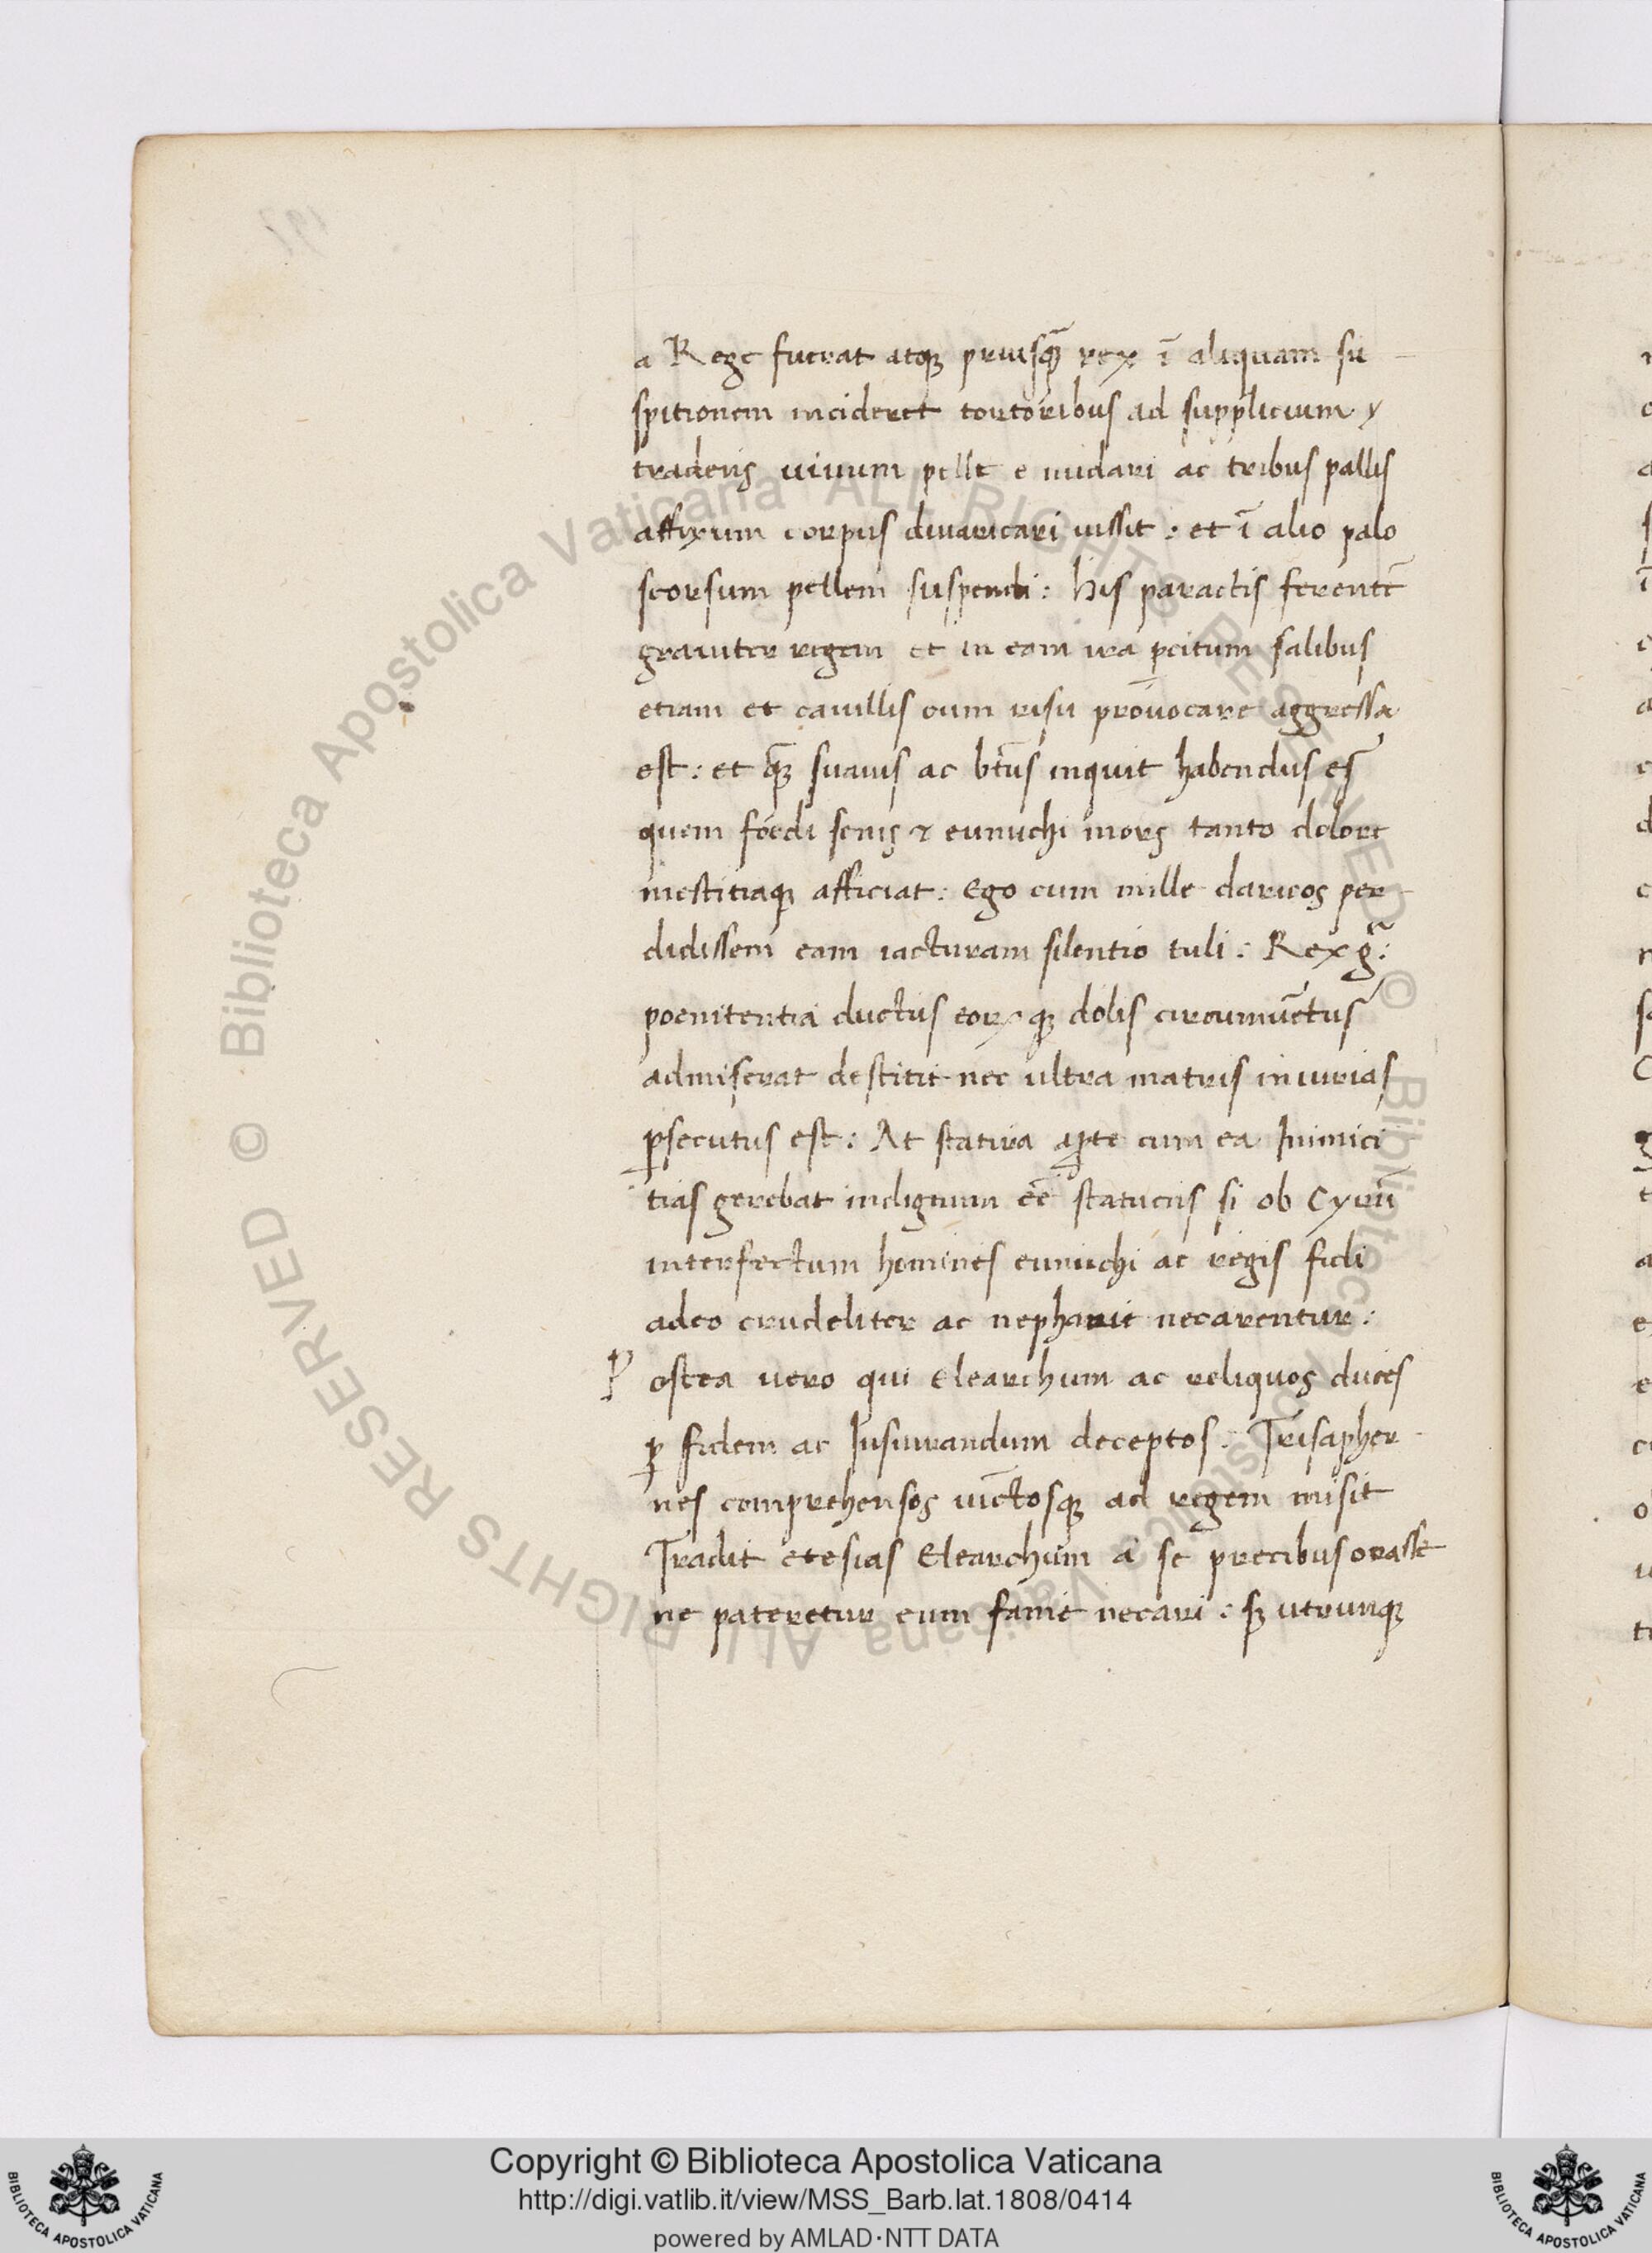 a Rege fuerat atqꝫ priusq̃ rex ī aliquam su
spitionem incideret tortoribus ad supplicium
tradens uiuum pelle e nudari ac tribus pallis
affixum corpus diuaricari iussit : et ī alio palo
seorsum pellem suspendi : his paractis ferentē
grauiter regem et in eam ira ꝑcitum salibus
etiam et cauillis cum risu prouocare aggressa
est : et q̃ꝫ suauis ac btũs inquit habendus es
quem foedi senis & eunuchi mors tanto dolore
mestitiaqꝫ afficiat : Ego cum mille daricos per
didissem eam iacturam silentio tuli : Rex g̃ :
poenitentia ductus eorꝝ qꝫ dolis circumuētus
admiserat destitit nec ultra matris iniurias
ꝑsecutus est : At statira aꝑte cum ea Inimici
tias gerebat indignum eē̃ statuens si ob Cyrū
interfectum homines eunuchi ac regis fidi
adeo crudeliter ac nepharie necarentur :
Postea uero qui Clearchum ac reliquos duces
ꝑ fidem ac Iusiurandum deceptos : Trisapher
nes comprehensos uīctosqꝫ ad regem misit
Tradit etesias Clearchum a se precibus orasse
ne pateretur eum fame necari : sꝫ utrunqꝫ
Copyright © Biblioteca Apostolica Vaticana
http://digi.vatlib.it/view/MSS_Barb.lat.1808/0414
powered by AMLAD·NTT DATA
BIBLIOTECA APOSTOLICA VATICANA
BIBLIOTECA APOSTOLICA VATICANA
© Biblioteca Apostolica Vaticana ALL RIGHTS RESERVED © Biblioteca Apostolica Vaticana ALL RIGHTS RESERVED